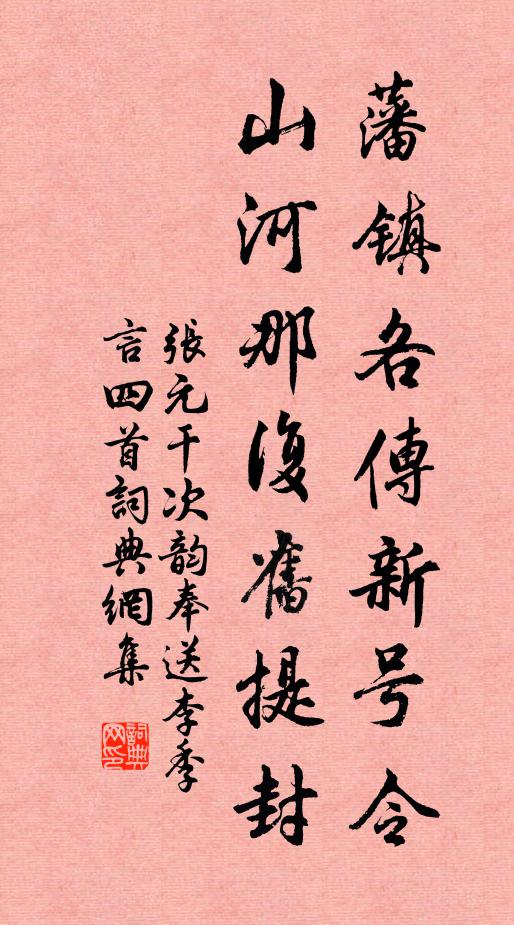 藩镇各傳新号令
山河那復舊提封
張元干次韵奉送李季
言四首詞典網集
詞典
网印